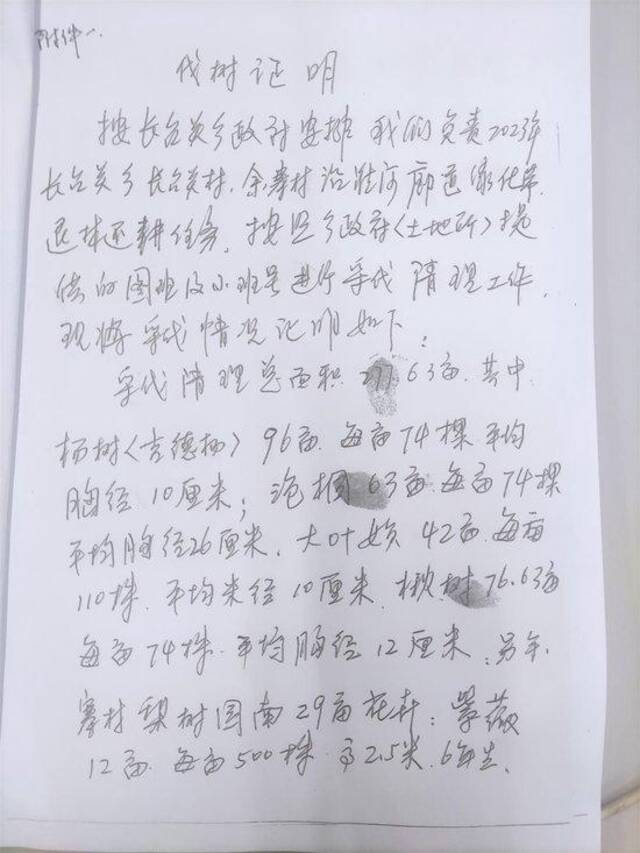 附件一.
伐树证明
按长台关乡政府安排 我们负责2023年
长台关乡长台关村.余寨村沿淮河廊道绿化带
退林还耕任务.按照乡政府(土地所)提
供的图班及小班号进行采伐清理工作,
现将采伐情况证明如下:
采伐清理总面积277.63亩.其中
杨树(吉德杨)96亩.每亩74棵.平均
胸径10厘米;泡桐63亩.每亩74棵
平均胸径26厘米.大叶女贞42亩.每亩
110株.平均米径10厘米.楸树76.63亩
每亩74株.平均胸径12厘米;另
寨村梨树园南29亩花卉:紫薇
12亩.每亩500株.高2.5米.6年生.